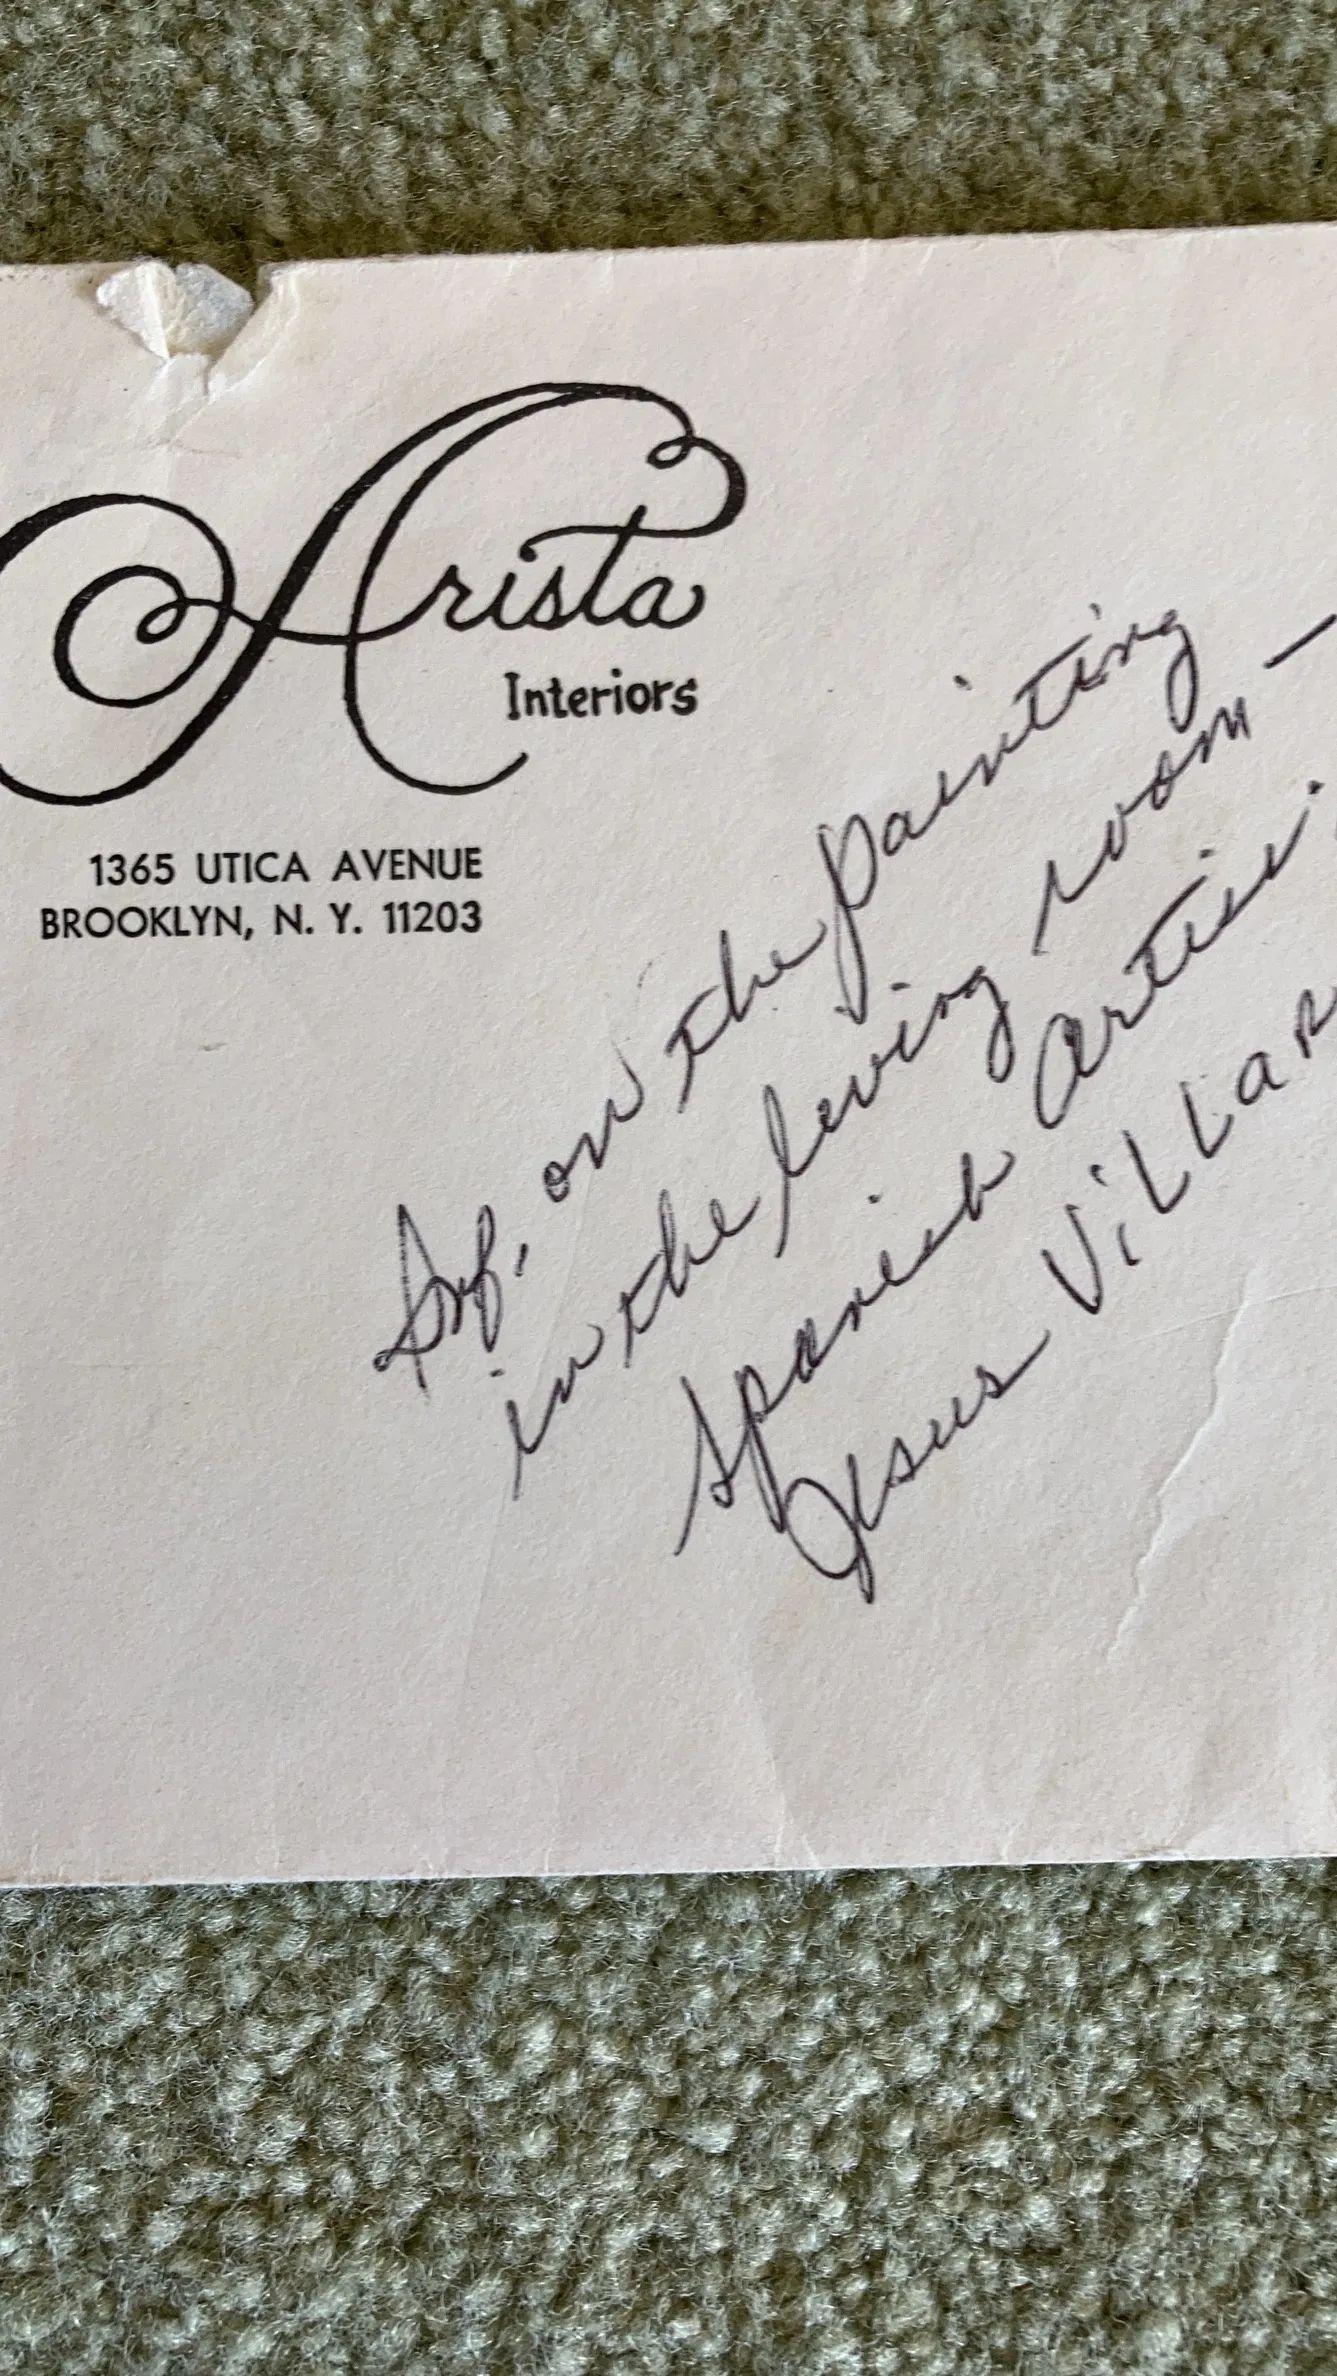 Arista
Interiors
1365 UTICA AVENUE
BROOKLYN, N. Y. 11203
Inf. on the painting
in the living room —
Spanish Artis
Jesus ViLLaR